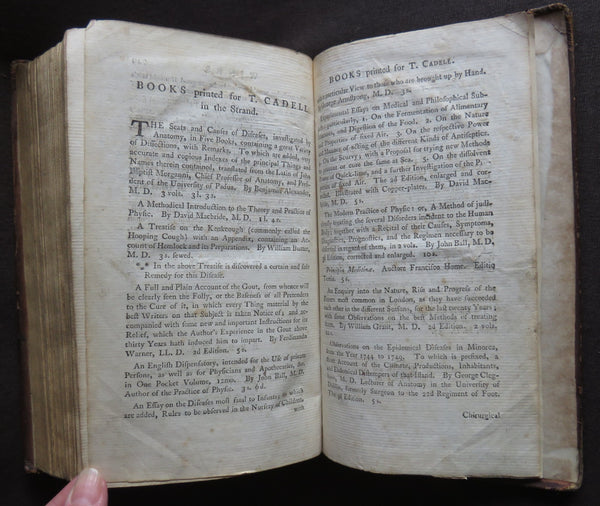 BOOKS printed for T. CADELL
in the Strand.
THE Seats and Causes of Diseases, investigated by
Anatomy, in Five Books, containing a great Variety
of Dissections, with Remarks. To which are added, very
accurate and copious Indexes of the principal Things and
Names therein contained, translated from the Latin of John
Baptist Morgagni, Chief Professor of Anatomy, and Presi-
dent of the University of Padua. By Benjamin Alexander,
M. D. 3 vols. 3l. 3s.
A Methodical Introduction to the Theory and Practice of
Physic. By David Macbride, M. D. 1l. 4s.
A Treatise on the Kenkcough (commonly called the
Hooping Cough) with an Appendix, containing an Ac-
count of Hemlock and its Preparations. By William Butter,
M. D. 3s. sewed.
*⁎* In the above Treatise is discovered a certain and safe
Remedy for this Disease.
A Full and Plain Account of the Gout, from whence will
be clearly seen the Folly, or the Baseness of all Pretenders
to the Cure of it, in which every Thing material by the
best Writers on that Subject is taken Notice of; and ac-
companied with some new and important Instructions for its
Relief, which the Author's Experience in the Gout above
thirty Years hath induced him to impart. By Ferdinando
Warner, LL. D. 2d Edition. 5s.
An English Dispensatory, intended for the Use of private
Persons, as well as for Physicians and Apothecaries, &c.
in One Pocket Volume, 12mo. By John Ball, M. D.
Author of the Practice of Physic. 3s. 6d.
An Essay on the Diseases most fatal to Infants, to which
are added, Rules to be observed in the Nursing of Children,
with
BOOKS printed for T. CADELL.
with particular View to those who are brought up by Hand.
George Armstrong, M. D. 3s.
Experimental Essays on Medical and Philosophical Sub-
particularly, 1. On the Fermentation of Alimentary
and Digestion of the Food. 2. On the Nature
Properties of fixed Air. 3. On the respective Power
Manner of acting of the different Kinds of Antiseptics.
On the Scurvy; with a Proposal for trying new Methods
prevent or cure the same at Sea. 5. On the dissolvent
of Quick-lime, and a further Investigation of the
of fixed Air. The 2d Edition, enlarged and cor-
Illustrated with Copper-plates. By David Mac-
M. D. 5s.
The Modern Practice of Physic: or, a Method of judi-
treating the several Disorders incident to the Human
together with a Recital of their Causes, Symptoms,
Diagnostics, Prognostics, and the Regimen necessary to be
in regard of them, in 2 vols. By John Ball, M. D.
Edition, corrected and enlarged. 10s.
Principia Medicinæ. Auctore Francisco Home. Editio
Tertia. 5s.
An Enquiry into the Nature, Rise and Progress of the
Fevers most common in London, as they have succeeded
each other in the different Seasons, for the last twenty Years;
with some Observations on the best Methods of treating
By William Grant, M. D. 2d Edition. 2 vols.
Observations on the Epidemical Diseases in Minorca,
from the Year 1744 to 1749. To which is prefixed, a
short Account of the Climate, Productions, Inhabitants,
and Endemical Distempers of that Island. By George Cleg-
horn, M. D. Lecturer of Anatomy in the University of
Dublin, formerly Surgeon to the 22d Regiment of Foot.
The 3d Edition. 5s.
Chirurgical